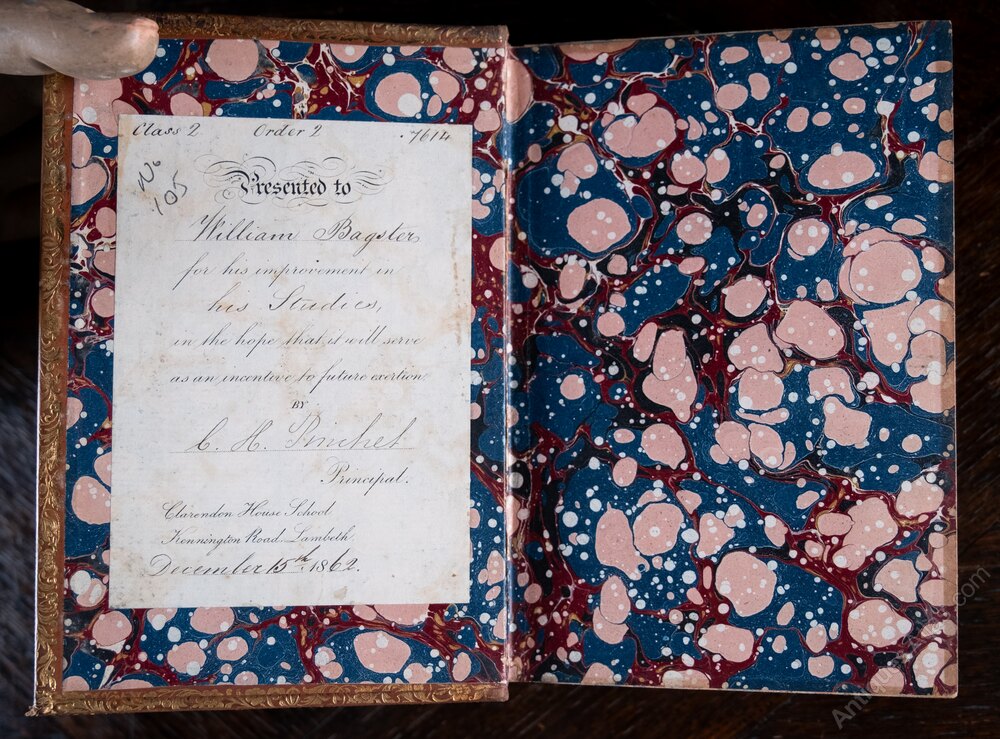 Class 2 Order 2 .7614
No
105
Presented to
William Bagster
for his improvement in
his Studies,
in the hope that it will serve
as an incentive to future exertion.
BY
C. H. Pinchet
Principal.
Clarendon House School
Kennington Road, Lambeth.
December 15th. 1862.